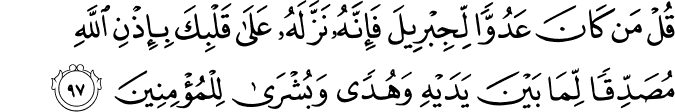 قُلْ مَن كَانَ عَدُوًّا لِّجِبْرِيلَ فَإِنَّهُۥ نَزَّلَهُۥ عَلَىٰ قَلْبِكَ بِإِذْنِ ٱللَّهِ
مُصَدِّقًا لِّمَا بَيْنَ يَدَيْهِ وَهُدًى وَبُشْرَىٰ لِلْمُؤْمِنِينَ ٩٧